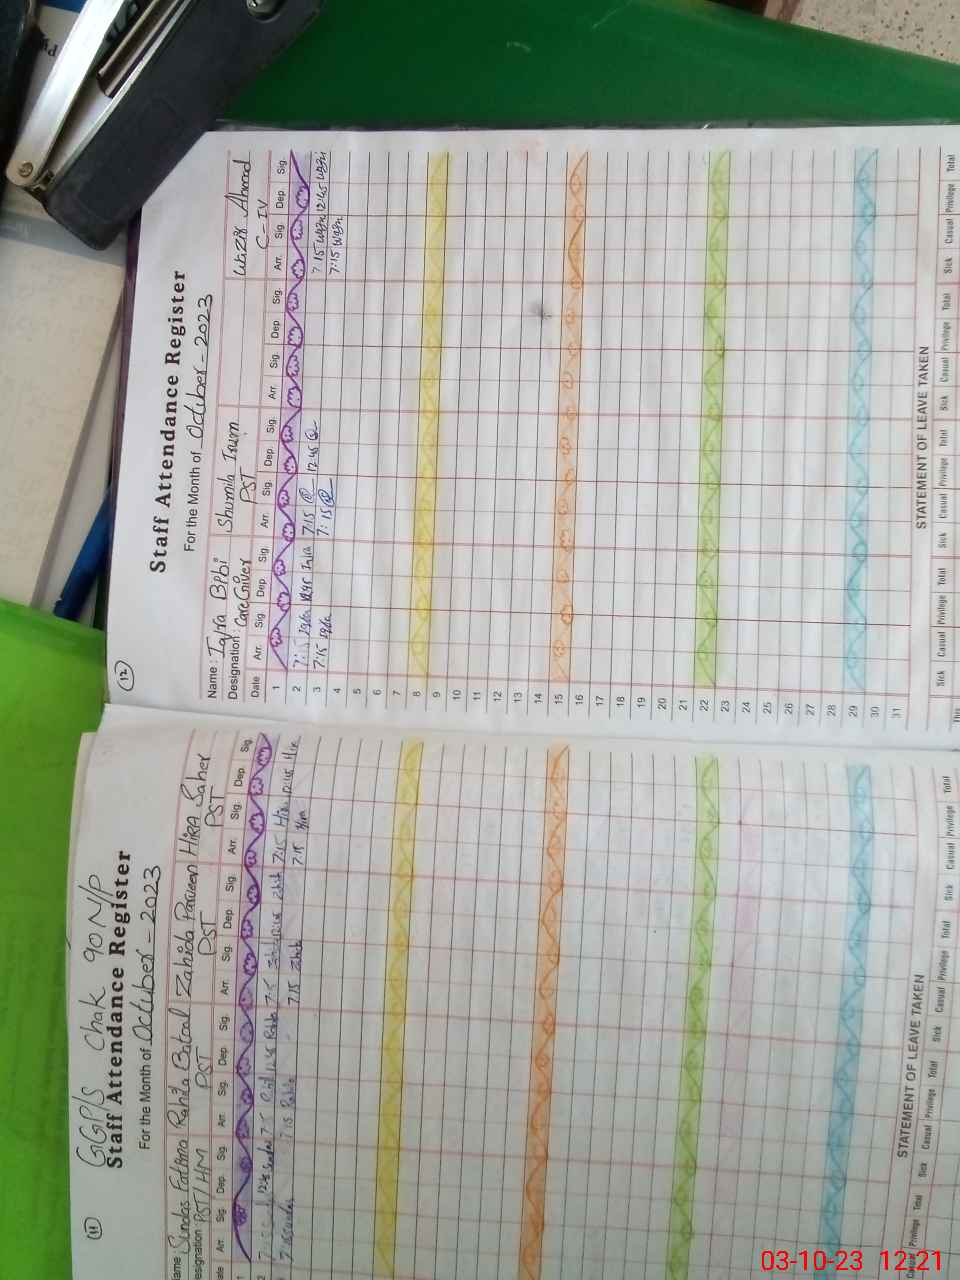 11
GGP/S Chak 90N/P
Staff Attendance Register
For the Month of October - 2023
ame: Sundas Fatima Rahila Batool Zahida Parveen HiRA Saher
esignation PST/HM PST PST PST
ate Arr. Sig. Dep. Sig. Arr. Sig. Dep. Sig. Arr. Sig. Dep. Sig. Arr. Sig. Dep. Sig.
1
2 12:45 Sundas 7:15 12:45 Rahila 7:15 Zahida 12:45 Zahida 7:15 Hira 12:45 Hira
7:15 Sundas 7:15 Rahila 7:15 Zahida 7:15 Hira
STATEMENT OF LEAVE TAKEN
Casual Privilege Total Sick Casual Privilege Total Sick Casual Privilege Total Sick Casual Privilege Total
12
Staff Attendance Register
For the Month of October - 2023
Name: Iqra Bibi Shumila Irum Wazir Ahmad
Designation: Care Giver PST C-IV
Date Arr. Sig. Dep. Sig. Arr. Sig. Dep. Sig. Arr. Sig. Dep. Sig. Arr. Sig. Dep. Sig.
1
2 7:15 Iqra 12:45 Iqra 7:15 12:45 7:15 Wazir 12:45 Wazir
3 7:15 Iqra 7:15 7:15 Wazir
4
5
6
7
8
9
10
11
12
13
14
15
16
17
18
19
20
21
22
23
24
25
26
27
28
29
30
31
STATEMENT OF LEAVE TAKEN
Sick Casual Privilege Total Sick Casual Privilege Total Sick Casual Privilege Total Sick Casual Privilege Total
This
03-10-23 12:21